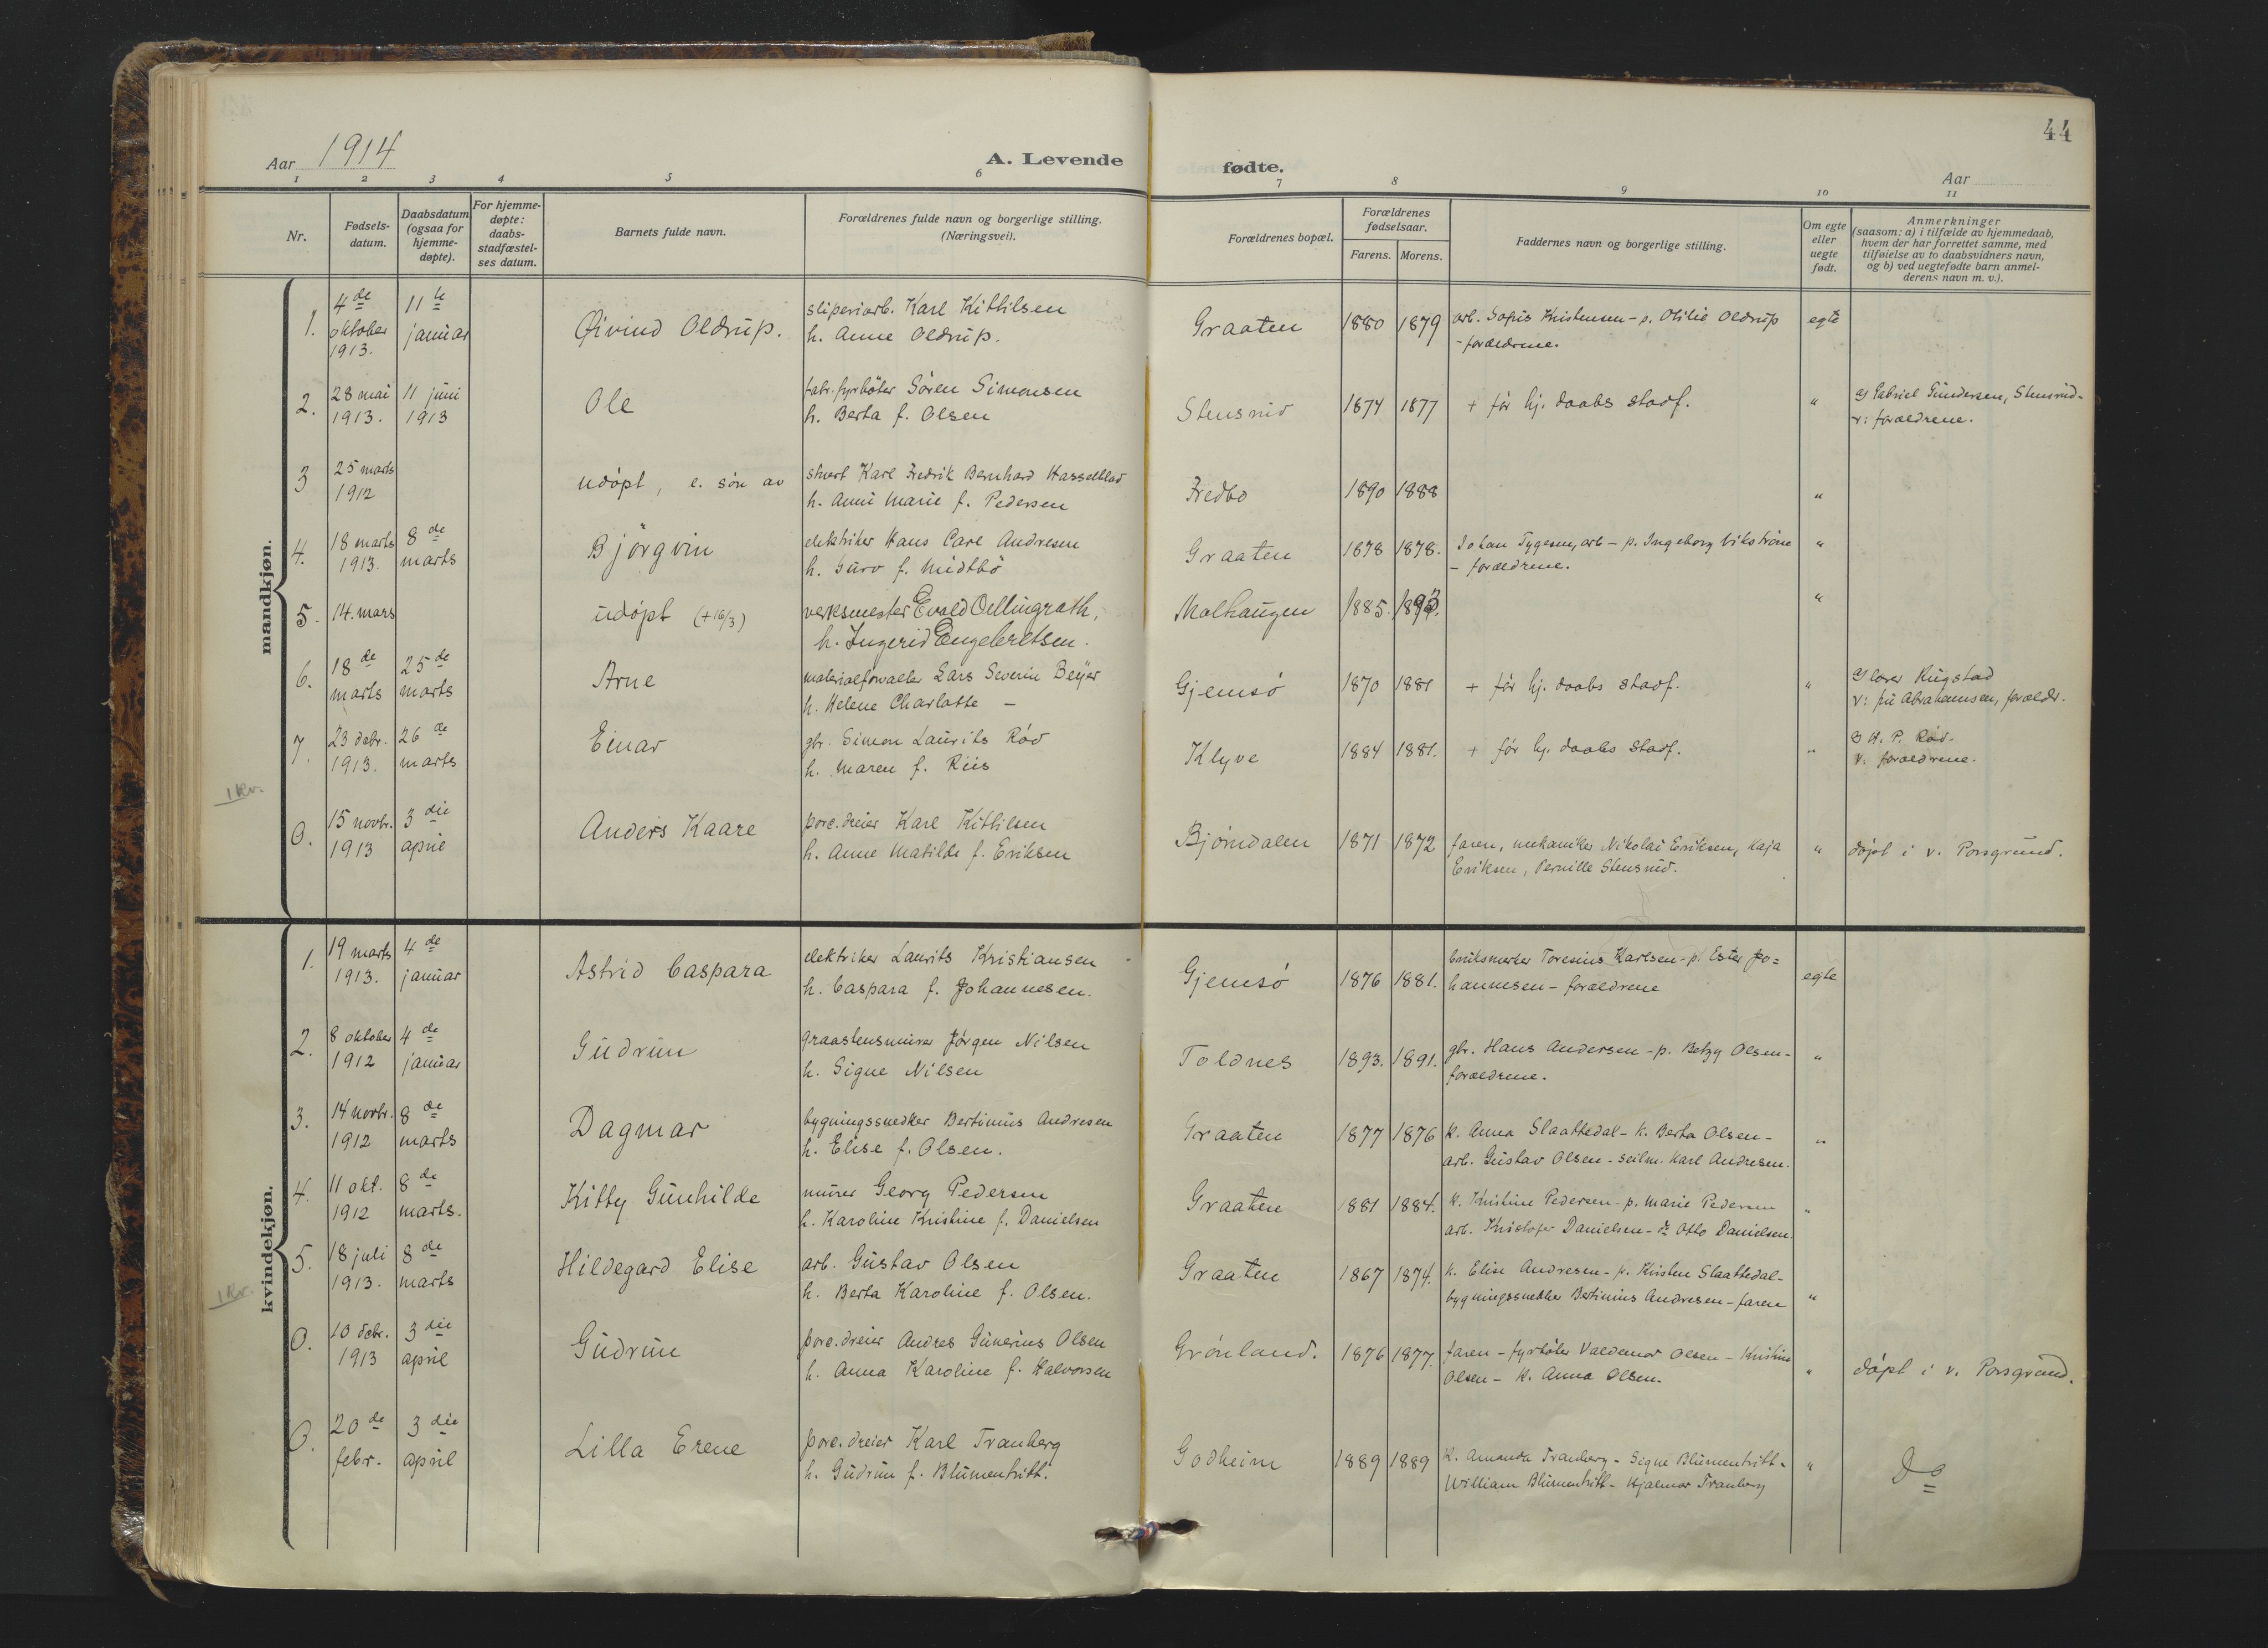 44
Aar 1914
A. Levende fødte.
Aar
1 2 3 4 5 6 7 8 9 10 11
Nr.
Fødsels-
datum.
Daabsdatum
(ogsaa for
hjemme-
døpte).
For hjemme-
døpte:
daabs-
stadfæstel-
ses datum.
Barnets fulde navn.
Forældrenes fulde navn og borgerlige stilling.
(Næringsvei).
Forældrenes bopæl.
Forældrenes
fødselsaar.
Farens. Morens.
Faddernes navn og borgerlige stilling.
Om egte
eller
uegte
født.
Anmerkninger
(saasom: a) i tilfælde av hjemmedaab,
hvem der har forrettet samme, med
tilføielse av to daabsvidners navn,
og b) ved uegtefødte barn anmel-
derens navn m. v.).
mandkjøn.
1.
4de
oktober
1913.
11te
januar
Øivind Oldrup.
sliperiarb. Karl Kittilsen
h. Anne Oldrup.
Graaten
1880 1879
arb. Sofus Kristensen - p. Otilie Oldrup
- forældrene.
egte
2.
28 mai
1913.
11 juni
1913
Ole
fabr. fyrbøter Søren Simonsen
h. Berta f. Olsen
Stensrud
1874 1877
+ før hj. daabs stadf.
"
a) Gabriel Gundersen, Stensrud-
v: forældrene.
3
25 marts
1912
udøpt, e. søn av
stuert Karl Fredrik Bernhard Hasselblad
h. Anni Marie f. Pedersen
Fredbo
1890 1888
"
4.
18 marts
1913.
8de
marts
Bjørgvin
elektriker Hans Carl Andresen
h. Guro f. Midtbø
Graaten
1878 1878.
Johan Tygesen, arb - p. Ingeborg Vikstrøm
- forældrene.
"
5.
14. mars
udøpt (+16/3)
verksmester Evald Oellingrath,
h. Ingerid Engebretsen.
Molhaugen
1885. 1893.
"
6.
18de
marts
25de
marts
Arne
materialforvalter Lars Severin Beyer
h. Helene Charlotte -
Gjemsø
1870 1881
+ før hj. daabs stadf.
"
a) lærer Rugstad
v: fru Abrahamsen, forældr.
7.
23 debr.
1913.
26de
marts
Einar
gbr. Simon Laurits Rød
h. Maren f. Riis
Klyve
1884 1881.
+ før hj. daabs stadf.
"
a) H. P. Rød.
v: forældrene.
1 Kr.
0.
15 novbr.
1913
3die
april
Anders Kaare
porc. dreier Karl Kittilsen
h. Anne Matilde f. Eriksen
Bjørndalen
1871 1872
faren, mekaniker Nikolai Eriksen, Kaja
Eriksen, Pernille Stensrud.
"
døpt i v. Porsgrund.
kvindekjøn.
1.
19 marts
1913.
4de
januar
Astrid Caspara
elektriker Laurits Kristiansen
h. Caspara f. Johannesen.
Gjemsø
1876 1881.
bruksmerker Toresius Karlsen - p. Ester Jo=
hannesen - forældrene
egte
2.
8 oktober
1912
4de
januar
Gudrun
graastensmurer Jørgen Nilsen
h. Signe Nilsen
Toldnes
1893. 1891.
gbr. Hans Andersen - p. Betzy Olsen -
forældrene.
"
3.
14 novbr.
1912
8de
marts
Dagmar
bygningssnedker Bertinius Andresen
h. Elise f. Olsen.
Graaten
1877 1876
k. Anna Slaattedal - k. Berta Olsen -
arb. Gustav Olsen - seilm. Karl Andresen.
"
4.
11 okt.
1912
8de
marts.
Kitty Gunhilde
murer Georg Pedersen
h. Karoline Kristine f. Danielsen
Graaten
1881 1884.
k. Kristine Pedersen - p. Marie Pedersen
arb. Kristofer Danielsen - do Otto Danielsen.
"
5.
18 juli
1913.
8de
marts
Hildegard Elise
arb. Gustav Olsen
h. Berta Karoline f. Olsen.
Graaten
1867 1874.
k. Elise Andresen - p. Kirsten Slaattedal -
bygningssnedker Bertinius Andresen - faren
"
1 Kr.
0.
10 debr.
1913
3die
april
Gudrun
porc. dreier Andres Gunerius Olsen
h. Anna Karoline f. Halvorsen
Grønland.
1876 1877.
faren - fyrbøter Valdemar Olsen - Kristine
Olsen - k. Anna Olsen.
"
døpt i v. Porsgrund.
0.
20de
febr.
3die
april
Lilla Erene
porc. dreier Karl Tranberg
h. Gudrun f. Blumentritt.
Godheim
1889 1889
k. Amanda Tranberg - Signe Blumentritt -
William Blumentritt - Hjalmar Tranberg
"
Do